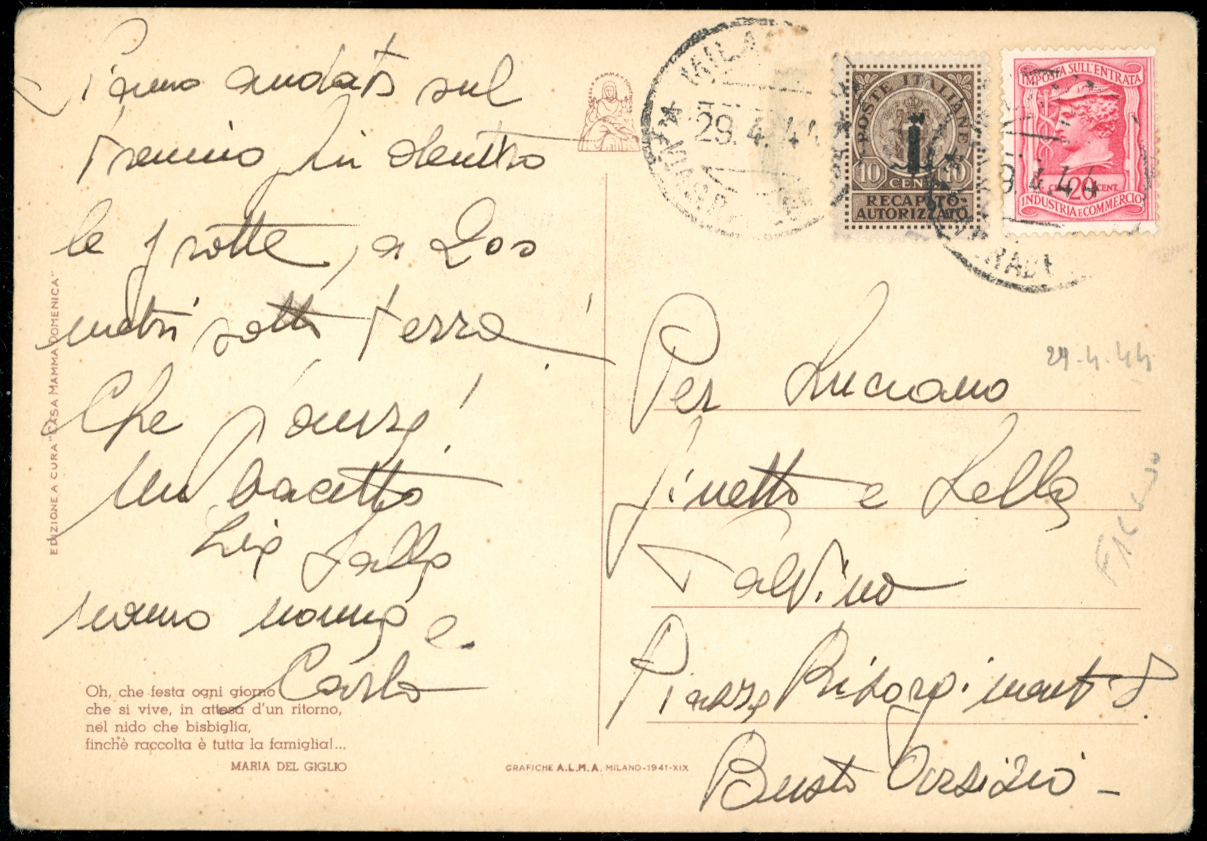 Siamo andati sul
trenino fin dentro
le grotte, a 200
metri sotto terra
Che paura!
Un bacetto
Lella
nonno nonna e
Carlo
Oh, che festa ogni giorno
che si vive, in attesa d'un ritorno,
nel nido che bisbiglia,
finchè raccolta è tutta la famiglia!...
MARIA DEL GIGLIO
EDIZIONE A CURA "CASA MAMMA DOMENICA"
GRAFICHE A.L.M.A. MILANO-1941-XIX
MAMMA
MILA
29.4.44
POSTE ITALIANE
10 CENT 10
RECAPITO
AUTORIZZATO
IMPOSTA SULL'ENTRATA
9.4.44
20 CENT.
INDUSTRIA E COMMERCIO
29-4-44
Per Luciano
Ginetto e Lella
Salvino
Piazza Risorgimento 8
Busto Arsizio -